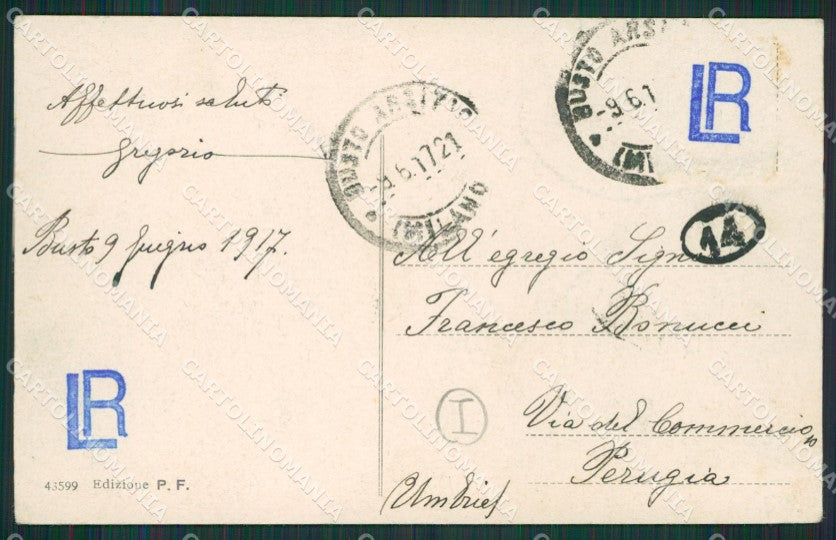 Affettuosi saluti
Gregorio
Busto 9 giugno 1917.
LR
43599 Edizione P. F.
BUSTO ARSIZIO
-9.6.17 21
(MILANO
BUSTO ARSI
-9.6.1
(MI
LR
14
All'egregio Sign
Francesco Bonucci
I
Via del Commercio, 10
Perugia
CARTOLINOMANIA